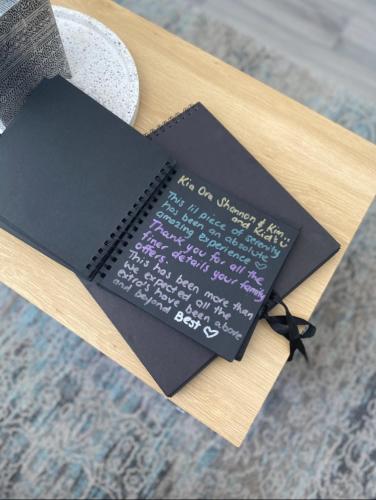 Kia Ora Shannon & Kim,
and Kid's
This lil piece of serenity
has been an absolute
amazing experience ♡
Thank you for all the
finer details your family
offers.
This has been more than
We expected all the
extra's have been above
and beyond Best ♡